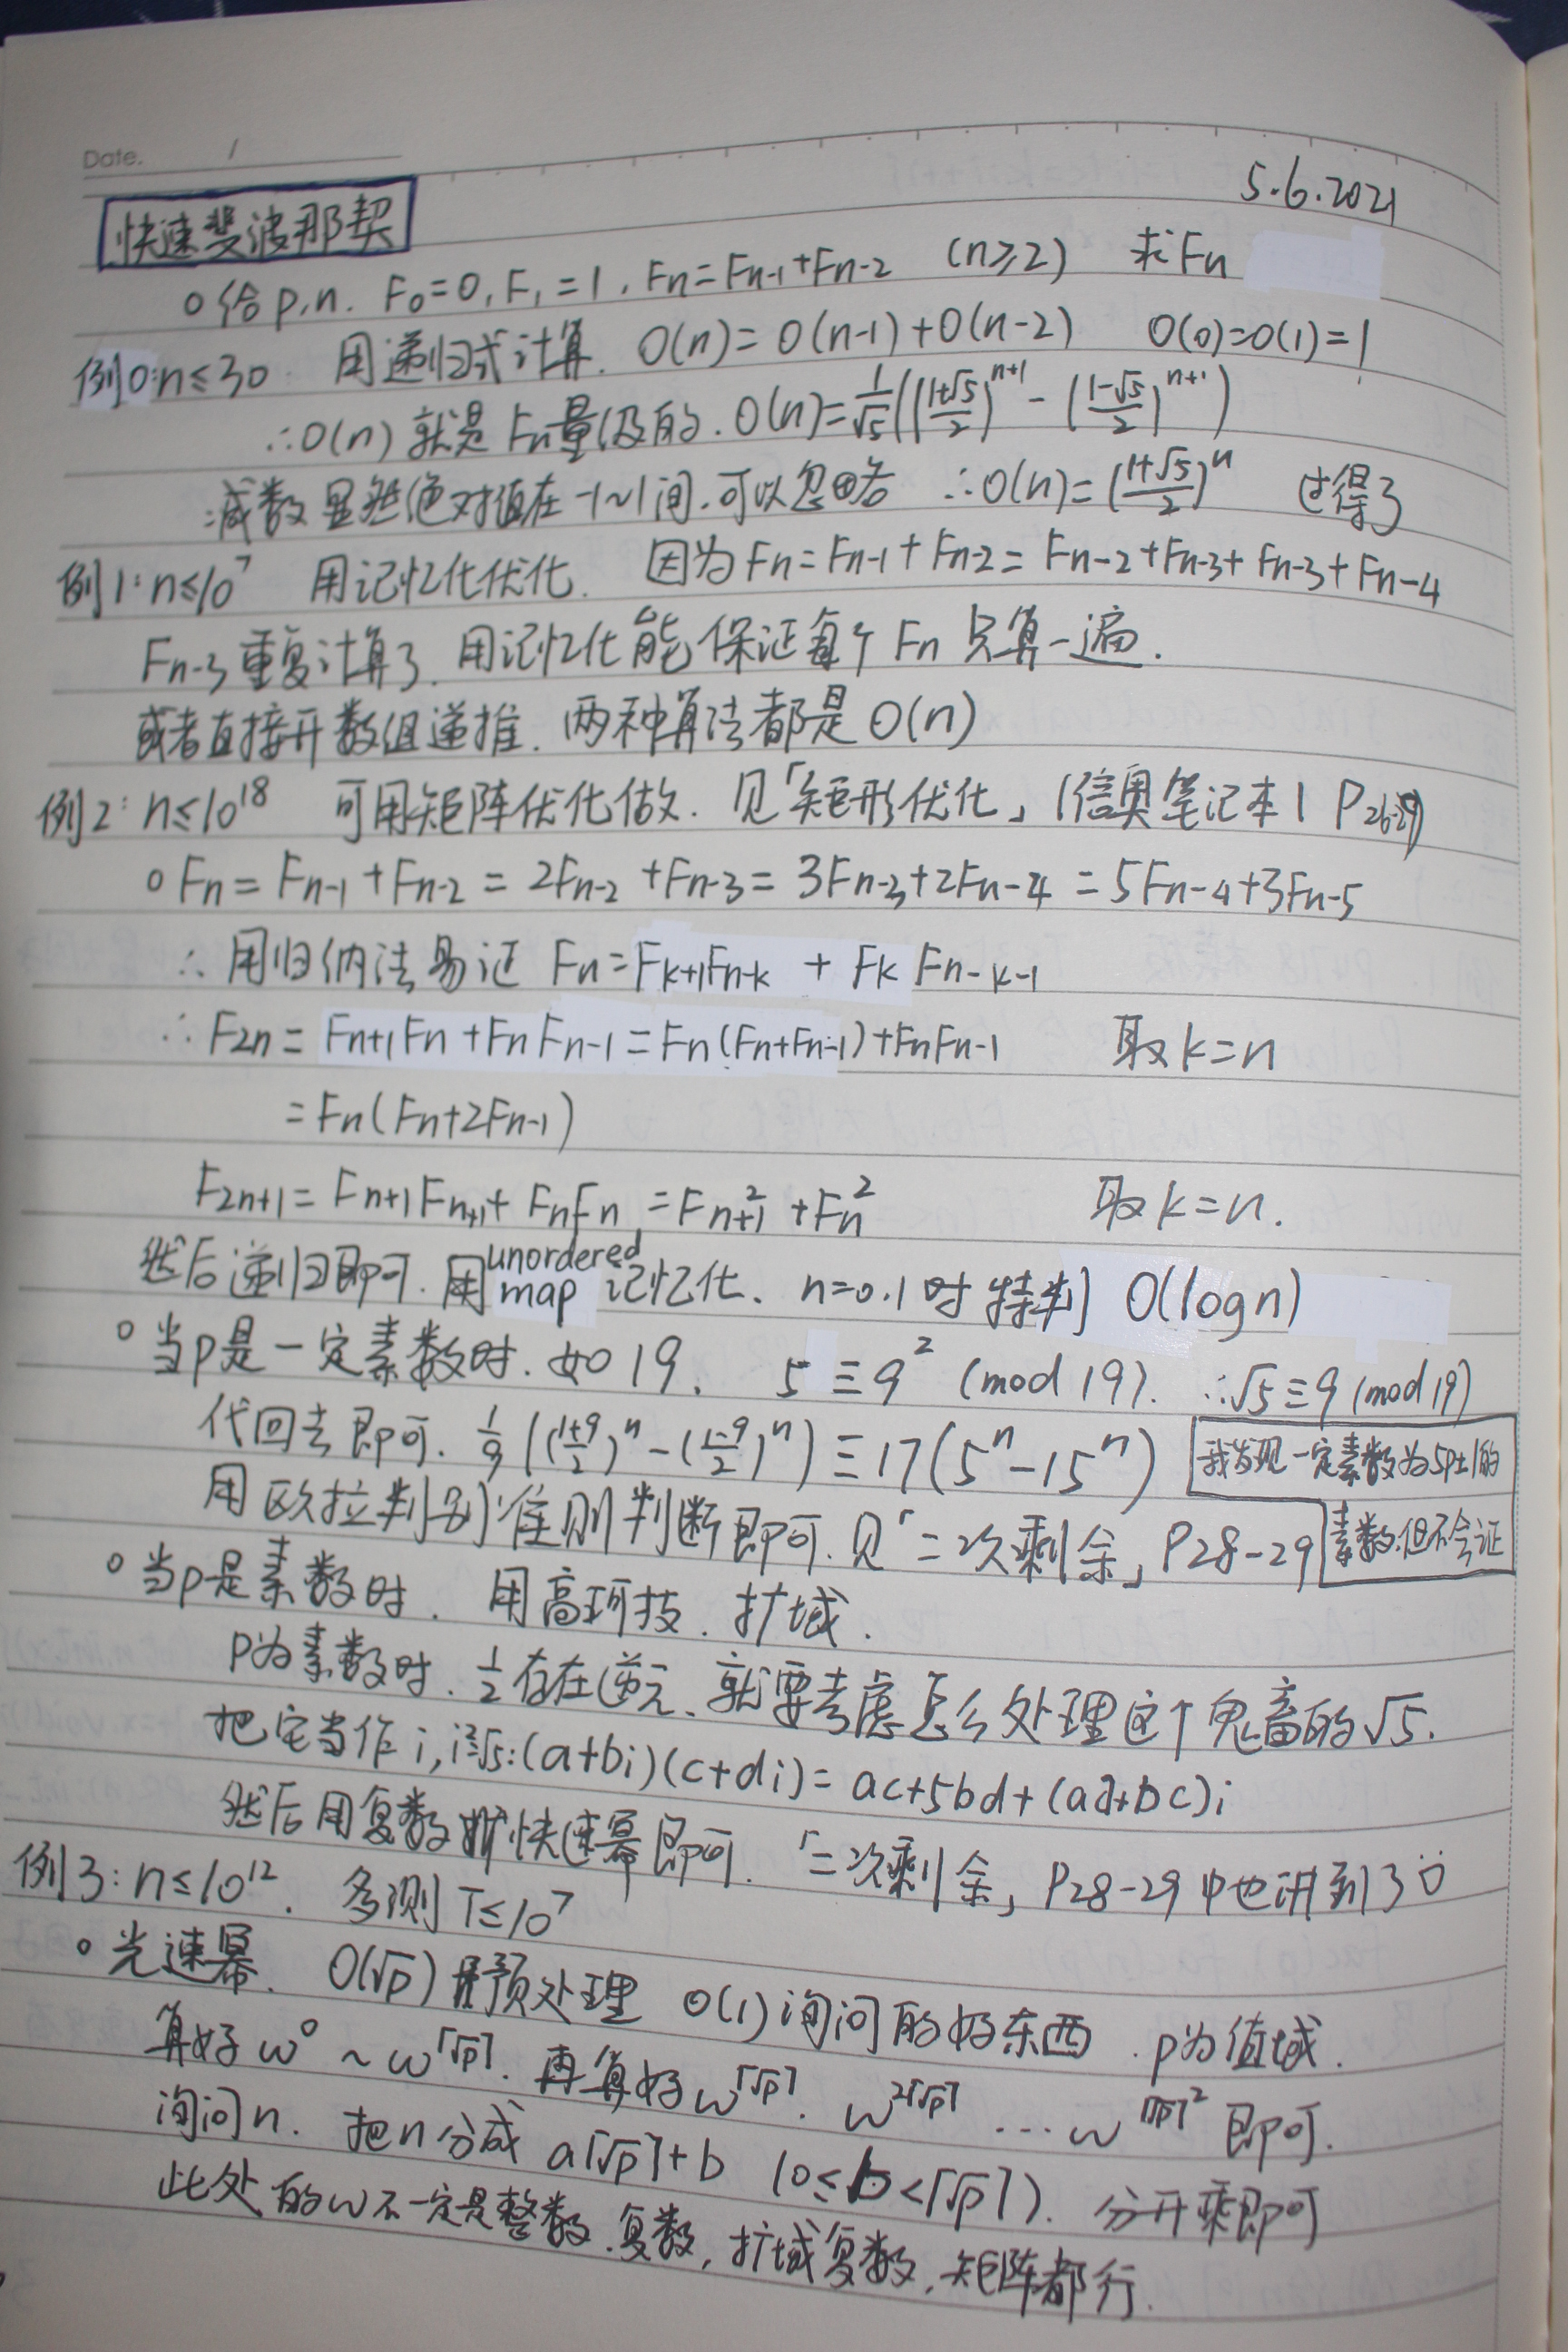 Date. /
5.6.2021
快速斐波那契
○给p,n. F₀=0,F₁=1,Fn=Fn-1+Fn-2 (n≥2) 求Fn
例0:n≤30 用递归式计算. O(n)=O(n-1)+O(n-2) O(0)=O(1)=1
∴O(n)就是Fn量级的. O(n)=1/√5(((1+√5)/2)^(n+1)-((1-√5)/2)^(n+1))
减数显然绝对值在-1~1间,可以忽略 ∴O(n)=((1+√5)/2)^n 过得了
例1:n≤10^7 用记忆化优化. 因为Fn=Fn-1+Fn-2=Fn-2+Fn-3+Fn-3+Fn-4
Fn-3重复计算了.用记忆化能保证每个Fn只算一遍.
或者直接开数组递推.两种算法都是O(n)
例2:n≤10^18 可用矩阵优化做.见「矩形优化」(信奥笔记本1 P26-29)
○Fn=Fn-1+Fn-2=2Fn-2+Fn-3=3Fn-3+2Fn-4=5Fn-4+3Fn-5
∴用归纳法易证 Fn=Fk+1Fn-k+FkFn-k-1
∴F2n=Fn+1Fn+FnFn-1=Fn(Fn+Fn-1)+FnFn-1 取k=n
=Fn(Fn+2Fn-1)
F2n+1=Fn+1Fn+1+FnFn=Fn+1²+Fn² 取k=n.
然后递归即可.用unordered map记忆化、n=0.1时特判 O(logn)
○当p是一定素数时.如19. 5≡9² (mod 19). ∴√5≡9 (mod 19)
代回去即可. 1/9(((1+9)/2)^n-((1-9)/2)^n)≡17(5^n-15^n)
我发现一定素数为5p±1的
素数.但不会证
用欧拉判别准则判断即可.见「二次剩余」P28-29
○当p是素数时. 用高科技.扩域.
P为素数时.1/2存在逆元、就要考虑怎么处理这个鬼畜的√5.
把它当作i,i=√5:(a+bi)(c+di)=ac+5bd+(ad+bc)i
然后用复数快速幂即可.「二次剩余」P28-29中也讲到了
例3:n≤10^12. 多测T≤10^7
○光速幂. O(√p)预处理 O(1)询问的好东西.p为值域.
算好ω^0~ω^⌈√p⌉.再算好ω^⌈√p⌉.ω^(2⌈√p⌉)...ω^(⌈√p⌉²)即可.
询问n. 把n分成a⌈√p⌉+b (0≤b<⌈√p⌉). 分开乘即可
此处的ω不一定是整数.复数,扩域复数,矩阵都行.